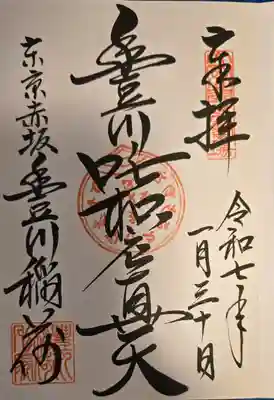 奉拝
令和七年
一月三十日
豊川吒枳尼真天
東京赤坂豊川稲荷